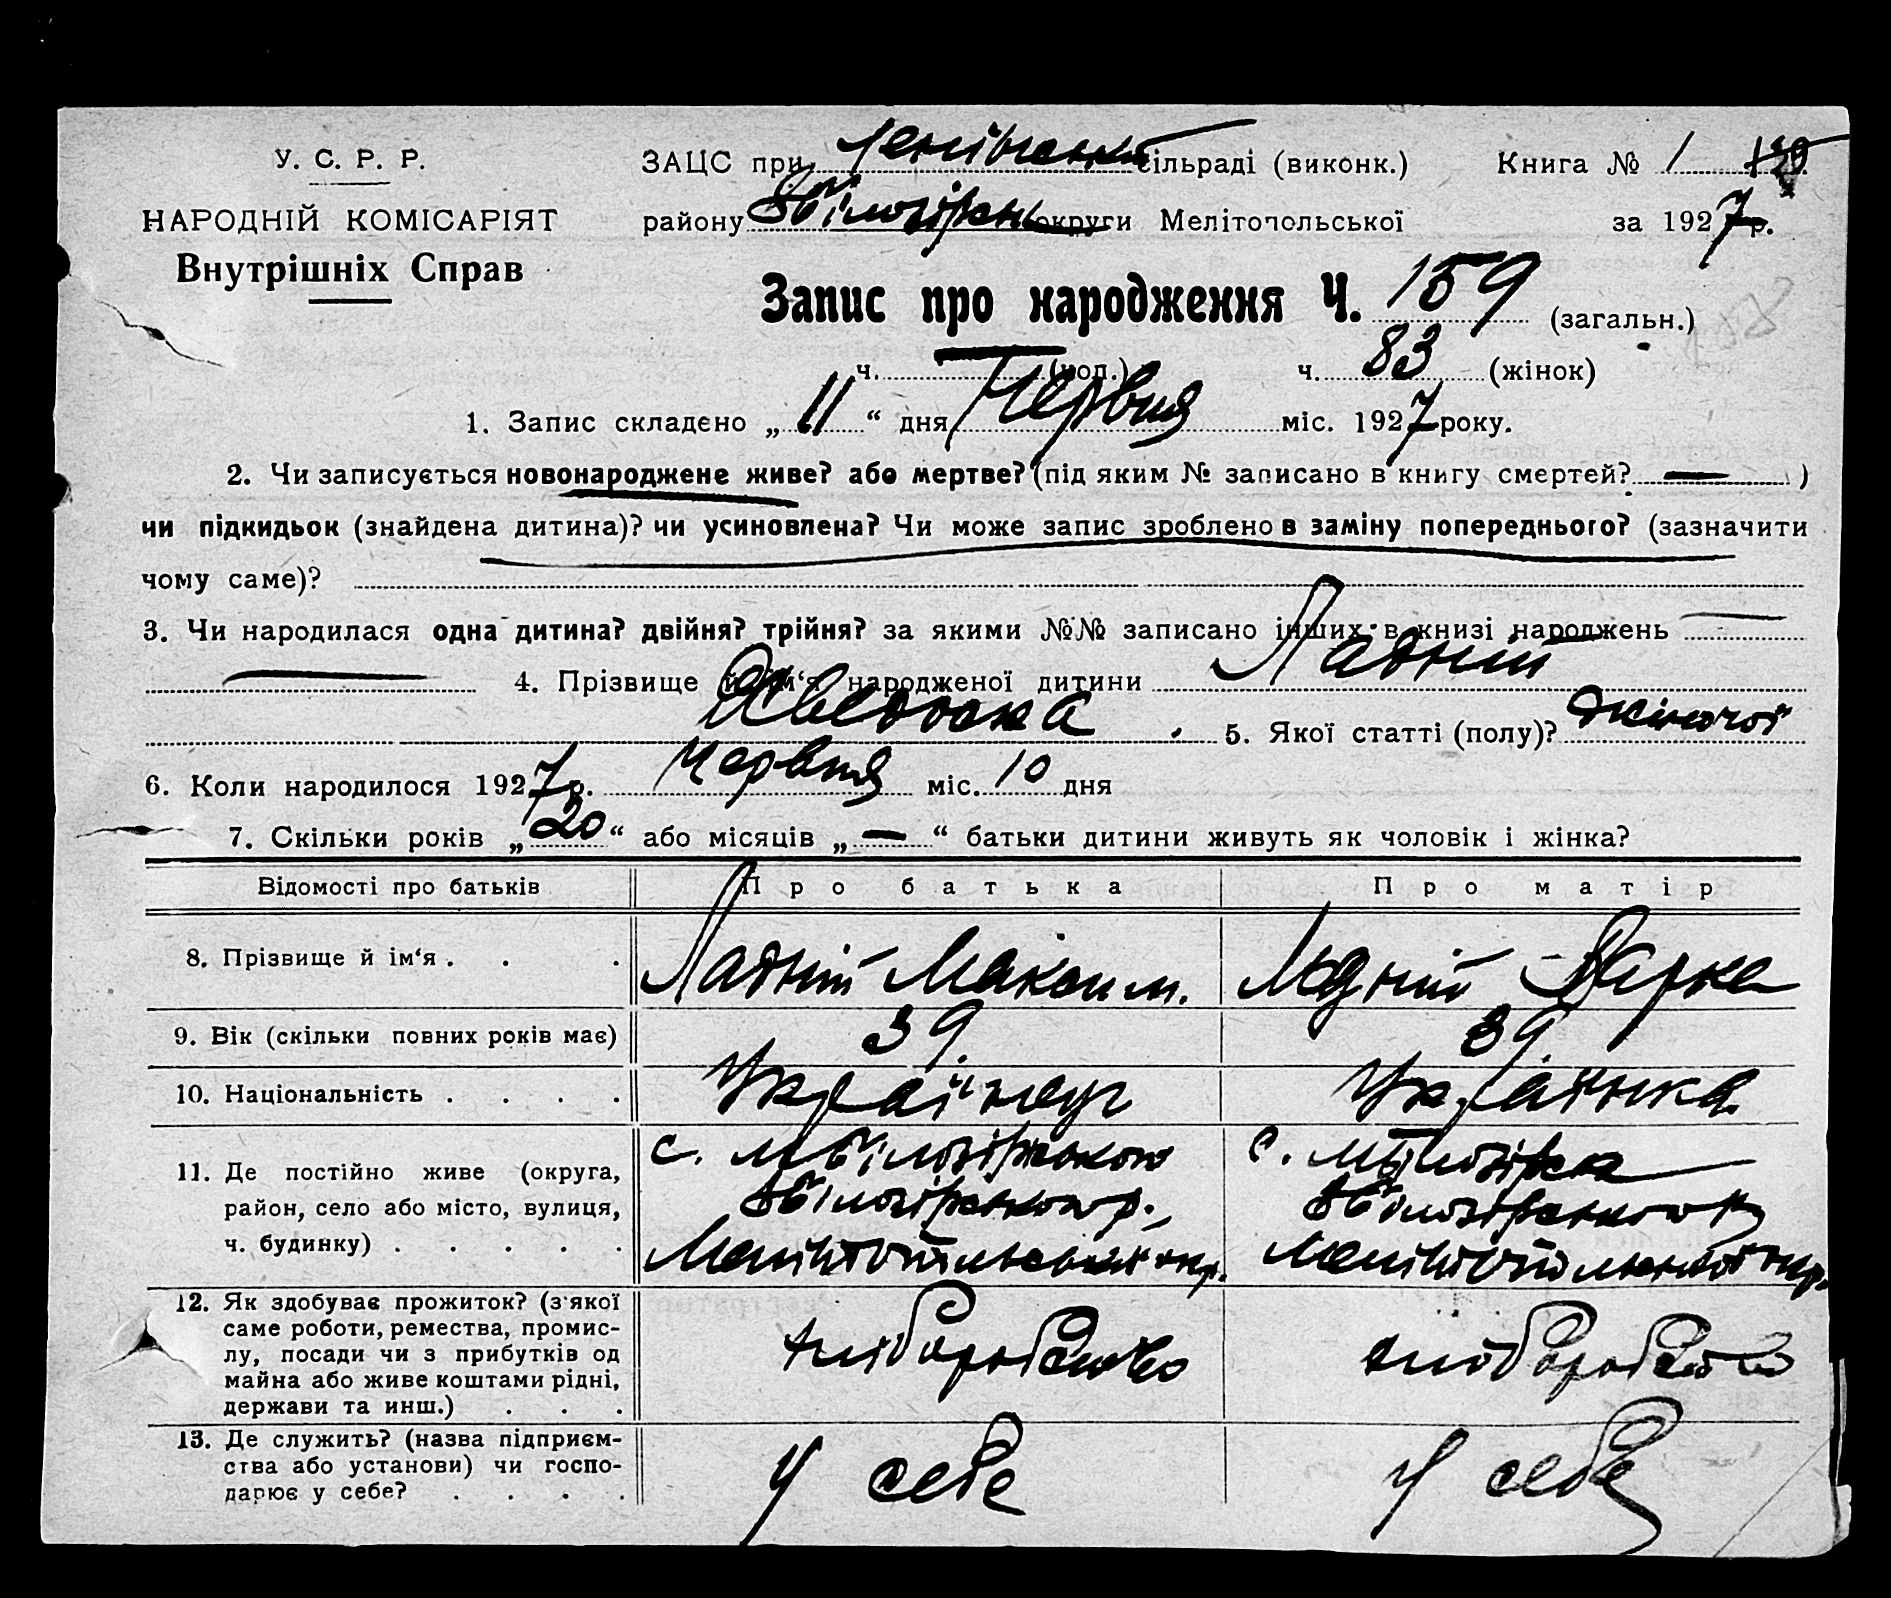 У. С. Р. Р.
НАРОДНІЙ КОМІСАРІЯТ
Внутрішніх Справ
ЗАЦС при Ленінській сільраді (виконк.)
Книга № 1
району округи Мелітопольської
за 1927 р.
Запис про народження Ч. 159 (загальн.)
ч. (чол.) ч. 83 (жінок)
1. Запис складено „ 11 “ дня Червня міс. 1927 року.
2. Чи записується новонароджене живе? або мертве? (під яким № записано в книгу смертей? — )
чи підкидьок (знайдена дитина)? чи усиновлена? Чи може запис зроблено в заміну попереднього? (зазначити
чому саме)?
3. Чи народилася одна дитина? двійня? трійня? за якими №№ записано інших в книзі народжень —
— 4. Прізвище й ім‘я народженої дитини Ладній
Явдошка . 5. Якої статті (полу)? жіночої
6. Коли народилося 1927 р. Червня міс. 10 дня
7. Скільки років „ 20 “ або місяців „ — “ батьки дитини живуть як чоловік і жінка?
Відомості про батьків Про батька Про матір
8. Прізвище й ім‘я . . . Ладній Максим. Ладній Дарка
9. Вік (скільки повних років має) 39. 39
10. Національність . . . . Українець Українка
11. Де постійно живе (округа,
район, село або місто, вулиця,
ч. будинку) . . . . .
с. М Білозірською
Білозірського р.
Мелітопільської окр.
с. М Білозірка
Білозірського р
Мелітопільської окр.
12. Як здобуває прожиток? (з'якої
саме роботи, ремества, промис-
лу, посади чи з прибутків од
майна або живе коштами рідні,
держави та инш.) . . .
хліборобство хліборобство
13. Де служить? (назва підприєм-
ства або установи) чи госпо-
дарює у себе? . . . .
У себе У себе